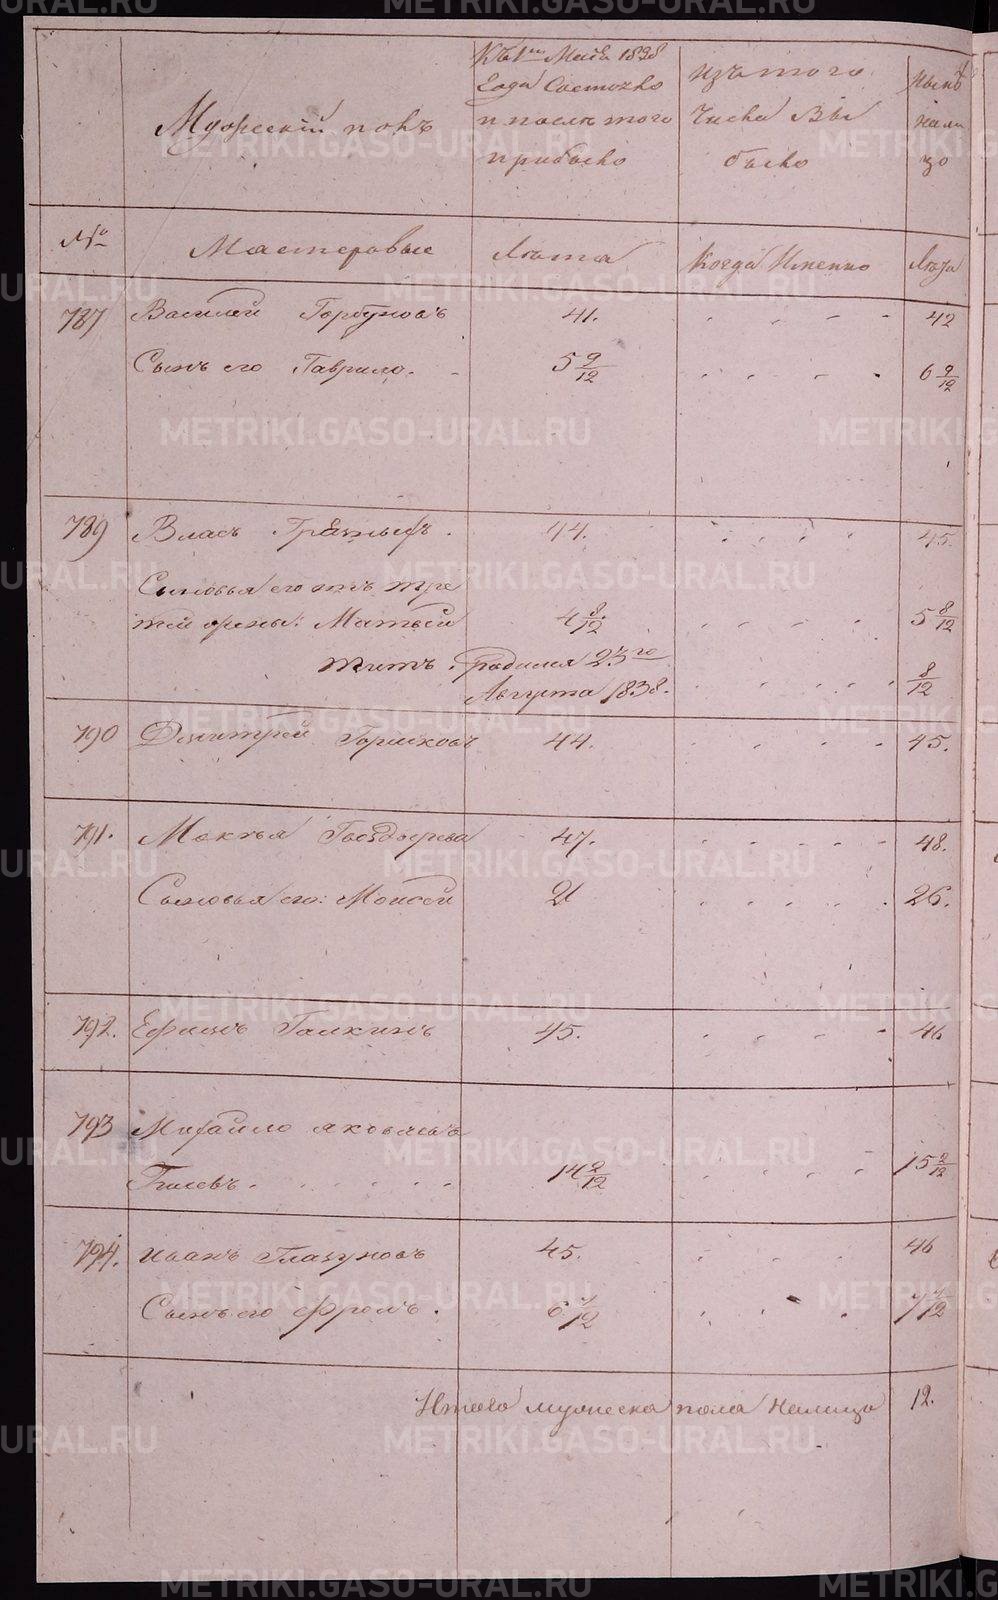 Мужескій полъ
Къ 1му Маія 1838
года Состояло
и после того
прибыло
изъ того
числа Вы
было
Нынѣ
нали
цо
№
Мастеровые
Лѣта
Когда Именно
Лѣта
787 Василей Горбуновъ 41. 42
Сынъ его Гаврило. 5 9/12 6 9/12
789 Власъ 44. 45.
Сыновья его отъ тре
тей жены: Матвей 4 8/12 5 8/12
Титъ. родился 23го
Августа 1838. 8/12
790 Дмитрей Горшковъ 44. 45.
791. Мокѣя 47. 48.
Сыновья его: Моисей 26.
792. Ефимъ Галкинъ 45. 46
793 Михайло Яковлевъ
Гилевъ. 14 2/12 15 2/12
794. Иванъ Глазуновъ 45. 46
Сынъ его Фролъ. 6 7/12 7 7/12
Итого мужеска пола налицо 12.
METRIKI.GASO-URAL.RU